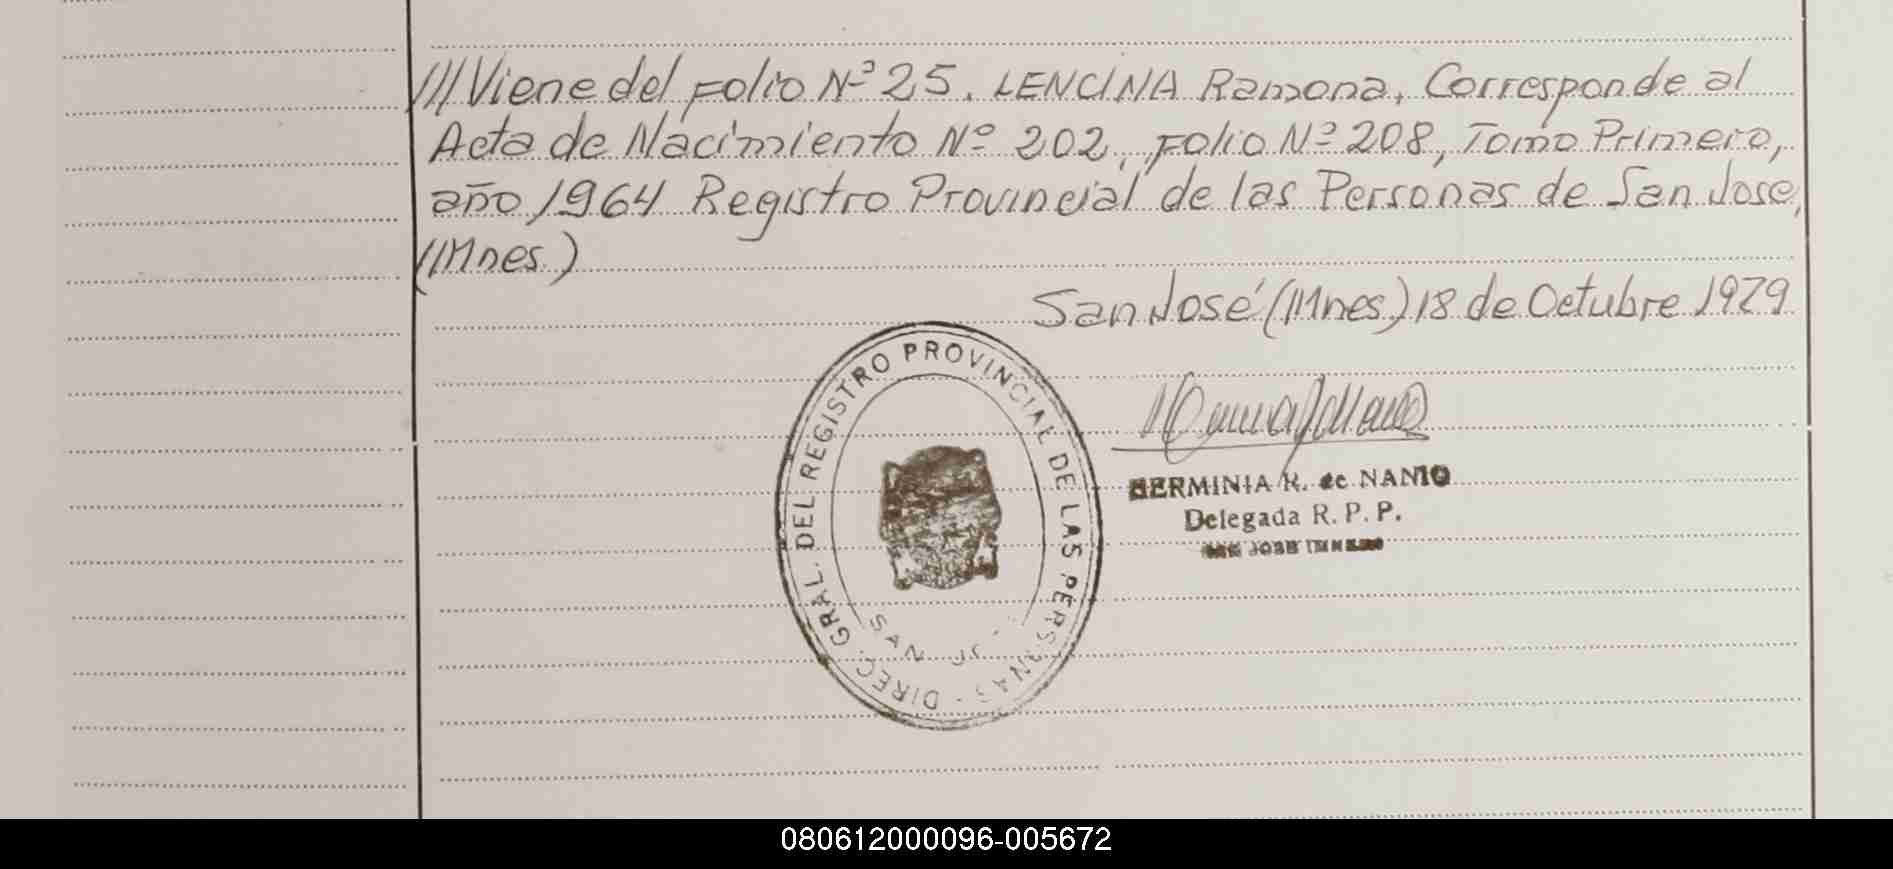 ///Viene del Folio Nº 25. LENCINA Ramona, Corresponde al
Acta de Nacimiento Nº 202, Folio Nº 208, Tomo Primero,
año 1964 Registro Provincial de las Personas de San Jose,
(Mnes.)
San José (Mnes.) 18 de Octubre 1979
DIREC. GRAL. DEL REGISTRO PROVINCIAL DE LAS PERSONAS -
SAN
HERMINIA R. de NANIO
Delegada R. P. P.
080612000096-005672